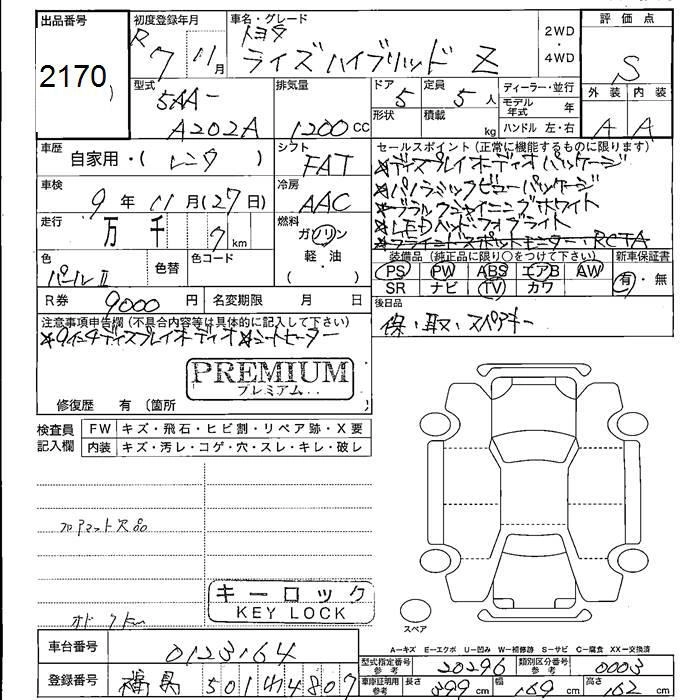 出品番号 初度登録年月 車名・グレード 評価点
2170
R 7 11月
トヨタ
ライズハイブリッド Z
2WD・4WD
S
型式 排気量 ドア 定員 ディーラー・並行 外装 内装
5AA-
A202A 1200cc 5 5人
形状 積載 kg
モデル年式 年
ハンドル 左・右
A A
車歴 自家用・(レンタ) シフト FAT
セールスポイント(正常に機能するものに限ります)
★ディスプレイオーディオパッケージ
車検 9年11月(27日) 冷房 AAC
★パノラミックビューパッケージ
★ブラックシャイニングホワイト
走行 万 千 7km 燃料 ガソリン
★LEDヘッド・フォグライト
★ブラインドスポットモニター・RCTA
色 パールⅡ 色替 色コード ( ) 軽油・( )
装備品(純正品に限り〇をつけて下さい) 新車保証書
PS PW ABS エアB AW
SR ナビ TV カワ
有・無
R券 9000円 名変期限 月 日
後日品
保・取・スペアキー
注意事項申告欄(不具合内容等は具体的に記入して下さい)
★9インチディスプレイオーディオ★シートヒーター
PREMIUM
プレミアム
修復歴 有(箇所 )
検査員記入欄 FW キズ・飛石・ヒビ割・リペア跡・X要
内装 キズ・汚レ・コゲ・穴・スレ・キレ・破レ
フロアマット欠品
キーロック
KEY LOCK
スペア
A-キズ E-エクボ U-凹み W-補修跡 S-サビ C-腐食 XX-交換済
車台番号 0123164
型式指定番号 参考 20296 類別区分番号 参考 0003
登録番号 福島 501 4807
車庫証明用 参考 長さ 399cm 幅 169cm 高さ 162cm